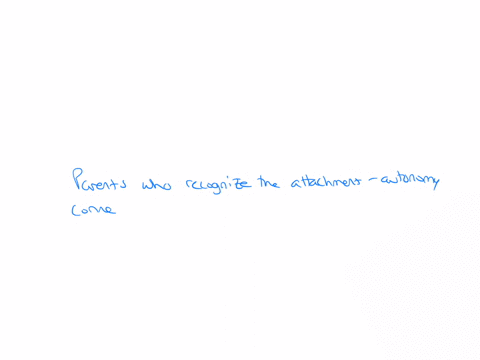 Parents who recognize the attachment-autonomy
come